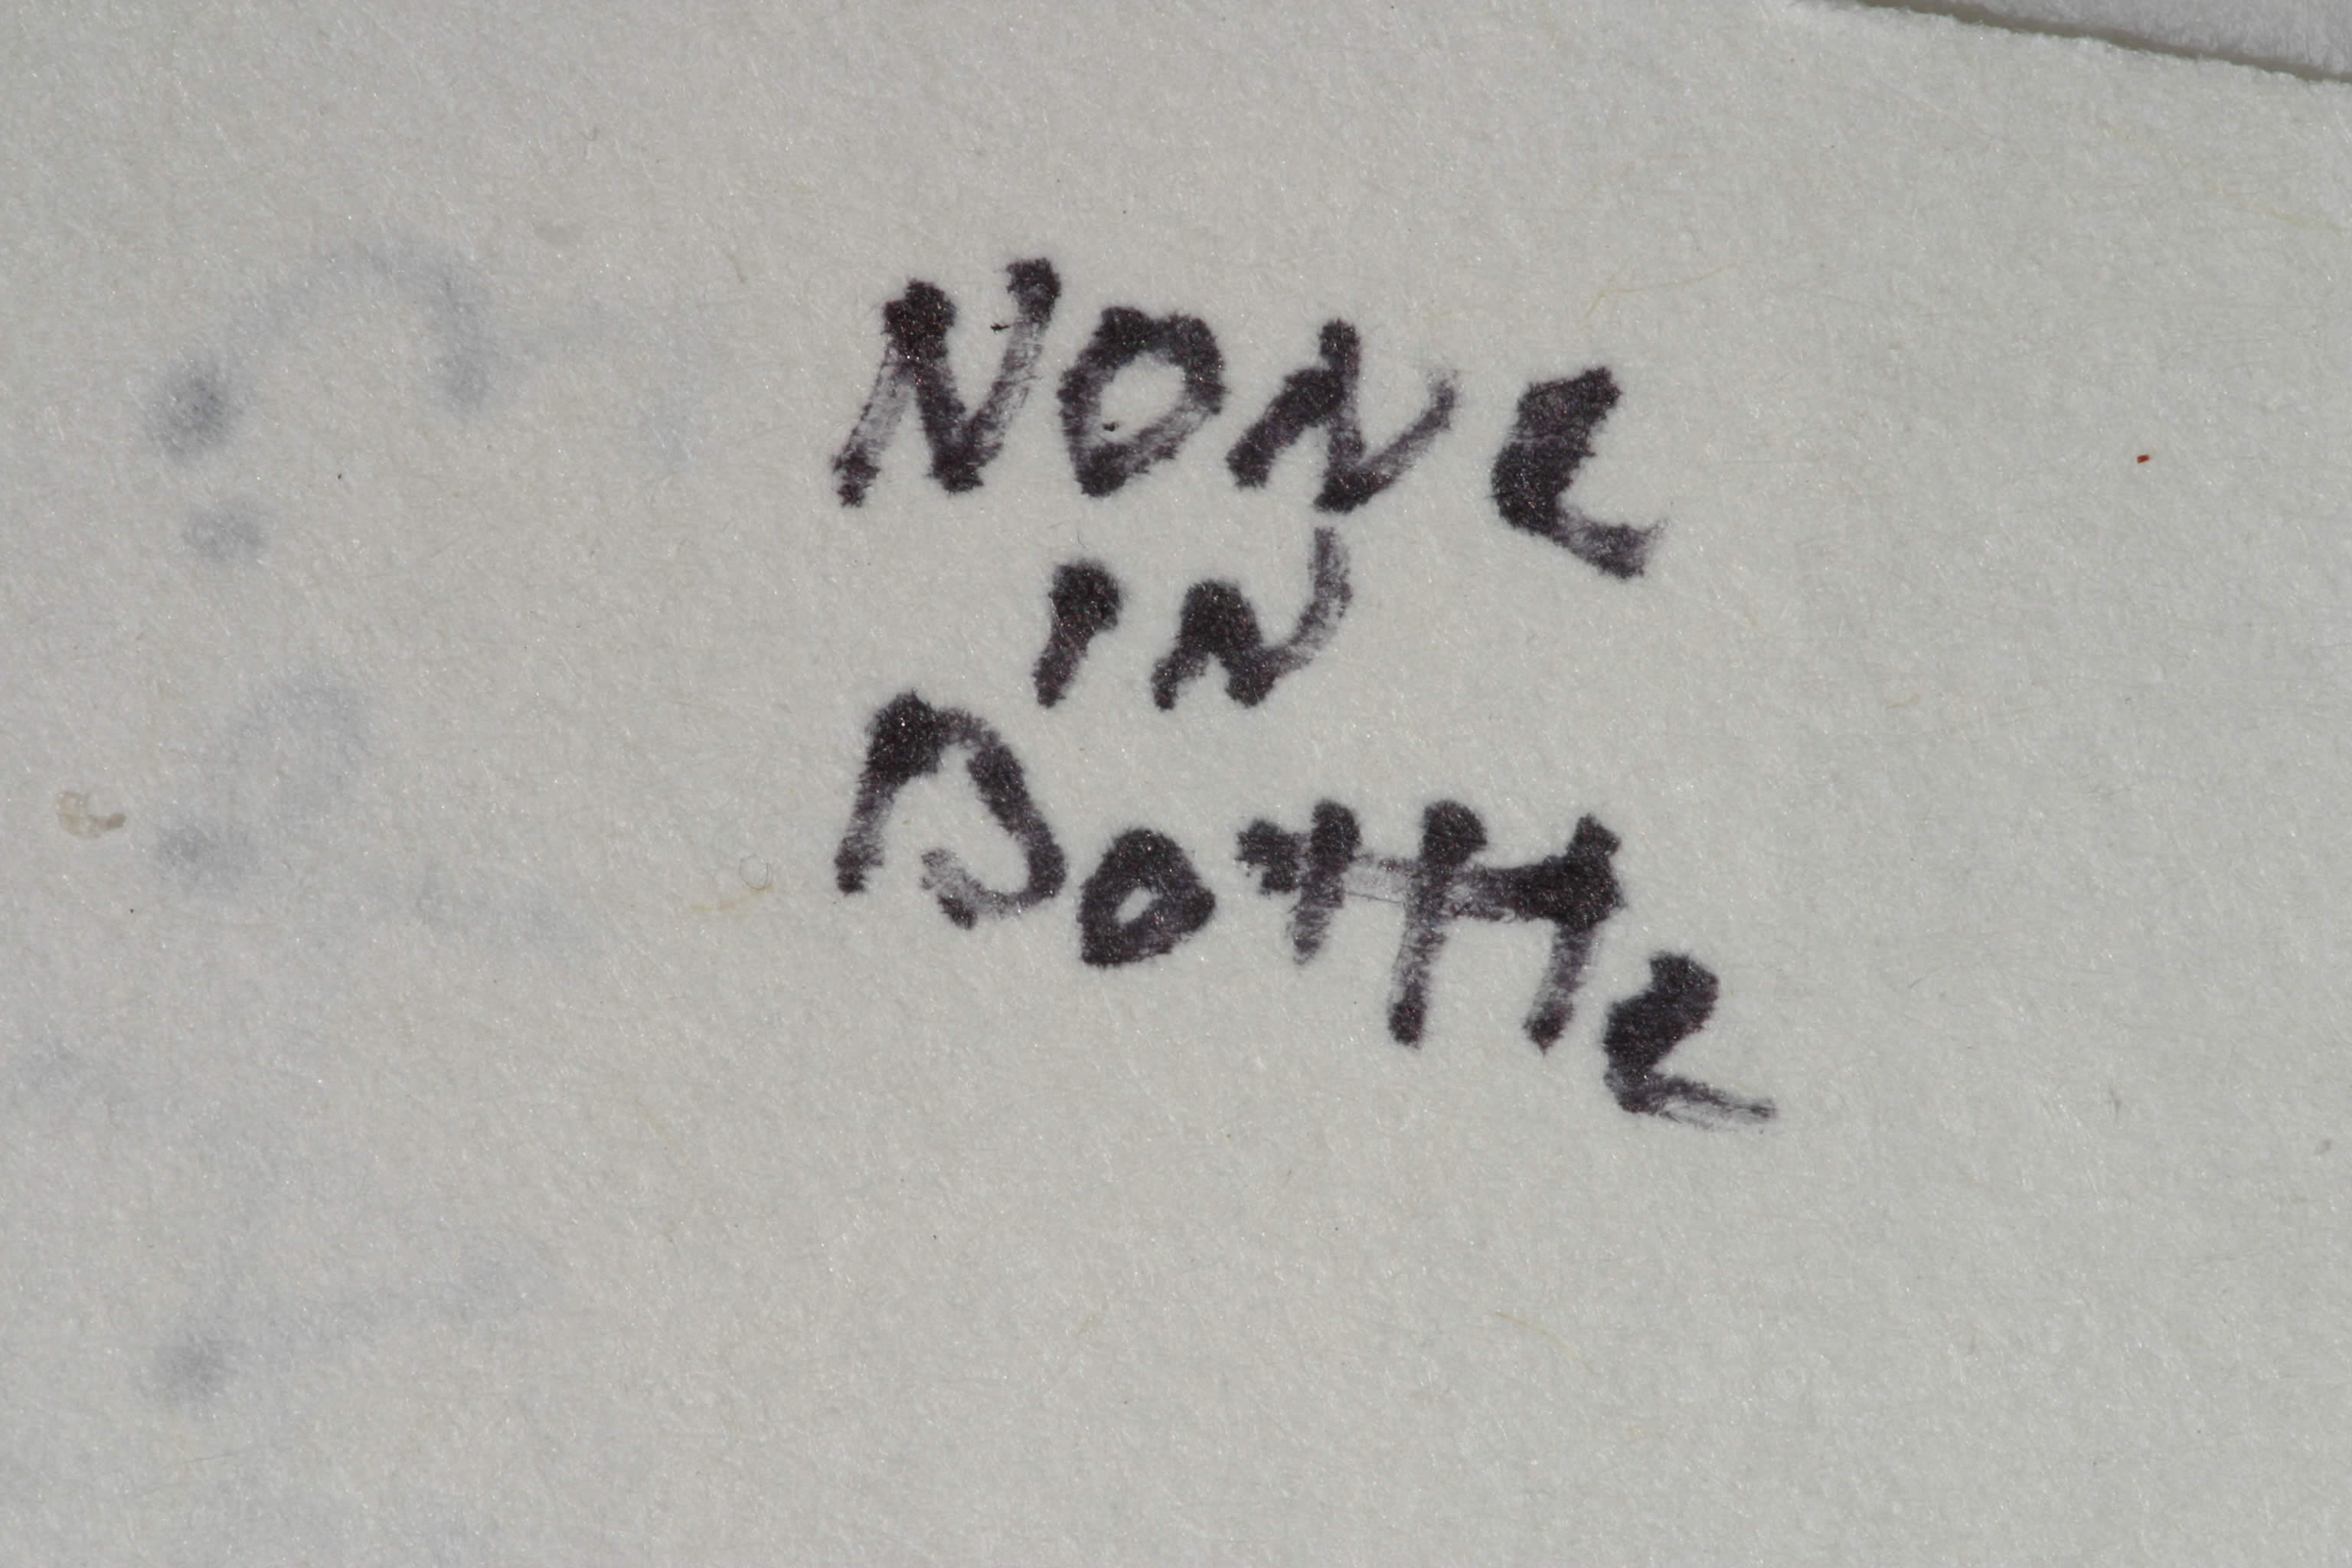 NONE
IN
Bottle